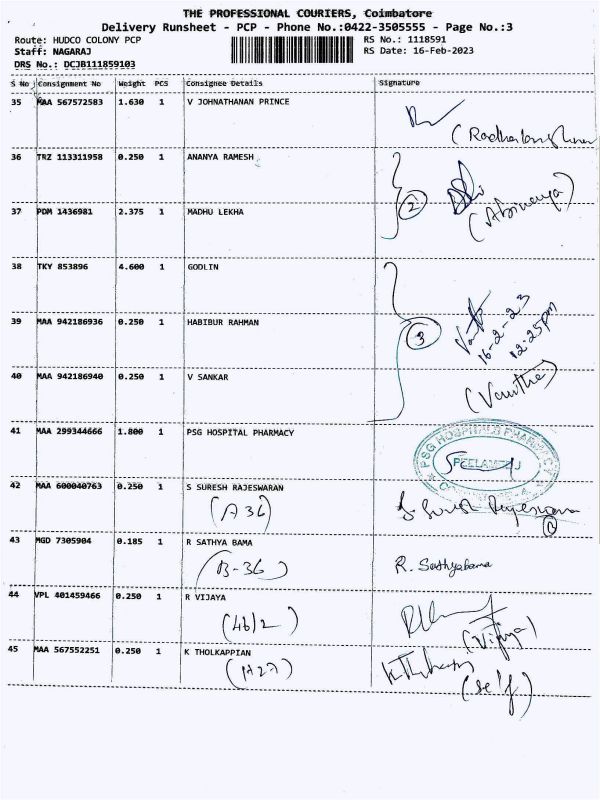 THE PROFESSIONAL COURIERS, Coimbatore
Delivery Runsheet - PCP - Phone No.:0422-3505555 - Page No.:3
Route: HUDCO COLONY PCP RS No.: 1118591
Staff: NAGARAJ RS Date: 16-Feb-2023
DRS No.: DCJB111859103
S No Consignment No Weight PCS Consignee Details Signature
35 MAA 567572583 1.630 1 V JOHNATHANAN PRINCE
36 TRZ 113311958 0.250 1 ANANYA RAMESH
2
(Abinaya)
37 PDM 1436981 2.375 1 MADHU LEKHA
38 TKY 853896 4.600 1 GODLIN
16-2-23
12:25pm
39 MAA 942186936 0.250 1 HABIBUR RAHMAN
3
40 MAA 942186940 0.250 1 V SANKAR
(Vanitha)
41 MAA 299344666 1.800 1 PSG HOSPITAL PHARMACY
PSG HOSPITALS PHARMACY
PEELAMEDU
42 MAA 600040763 0.250 1 S SURESH RAJESWARAN
(A 36) S. Suresh Rajeswaran
43 MGD 7305904 0.185 1 R SATHYA BAMA
(B-36) R. Sathyabama
44 VPL 401459466 0.250 1 R VIJAYA
(46/2) (Vijaya)
45 MAA 567552251 0.250 1 K THOLKAPPIAN
(A27) (self)